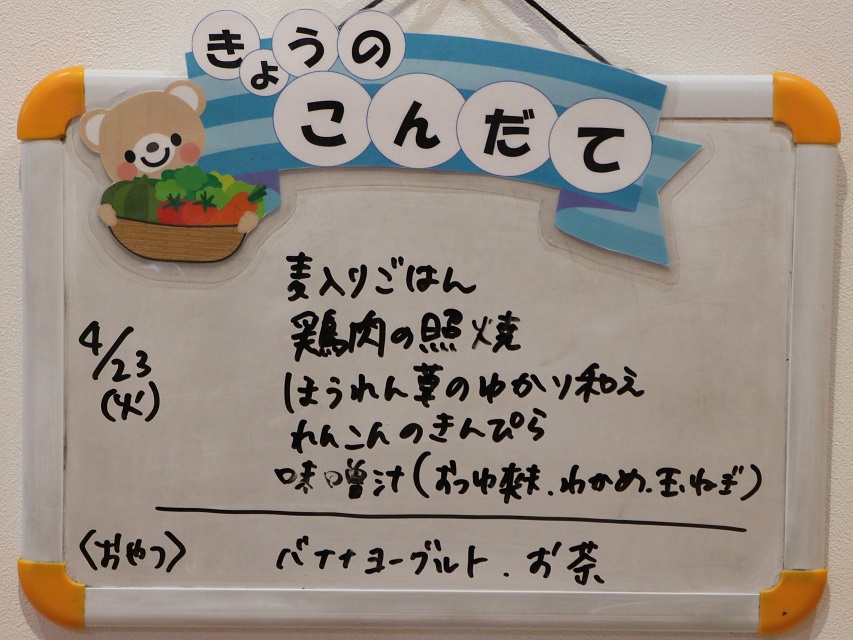 きょうの
こんだて
4/23
(火)
麦入りごはん
鶏肉の照焼
ほうれん草のゆかり和え
れんこんのきんぴら
味噌汁(おつゆ麩.わかめ.玉ねぎ)
〈おやつ〉
バナナヨーグルト.お茶